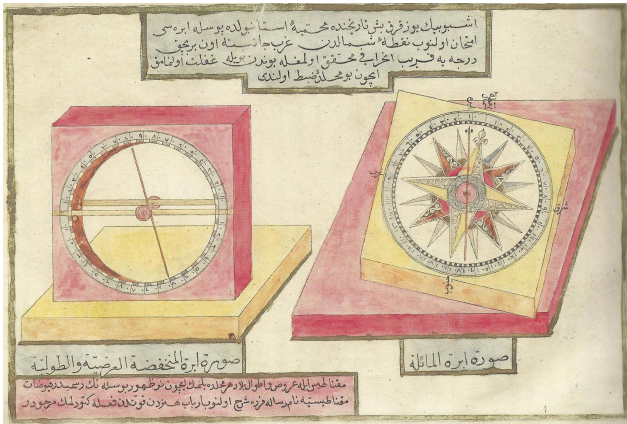 اشبو بیك یوز قرق بش تاریخنده محمیهٔ استانبولده بوسله ابره سی
امتحان اولنوب نقطهٔ شمالدن غرب جانبنه اون بر بچق
درجه یه قریب انحرافی محقق اولمغله بوندن بویله غفلت اولنمامق
ایچون بو محلده ضبط اولندی
صورة ابرة المنخفضة العرضیة والطولیة
صورة ابرة المائلة
مقناطیس ایله عروض و اطوال بلاد هر محلده بلنمك ایچون نوظهور بوسله نك رسمیدر فیوضات
مقناطیسیه نام رساله مزده شرح اولنوب ارباب هنردن قوتدن فعله كتورلمك مرجودر